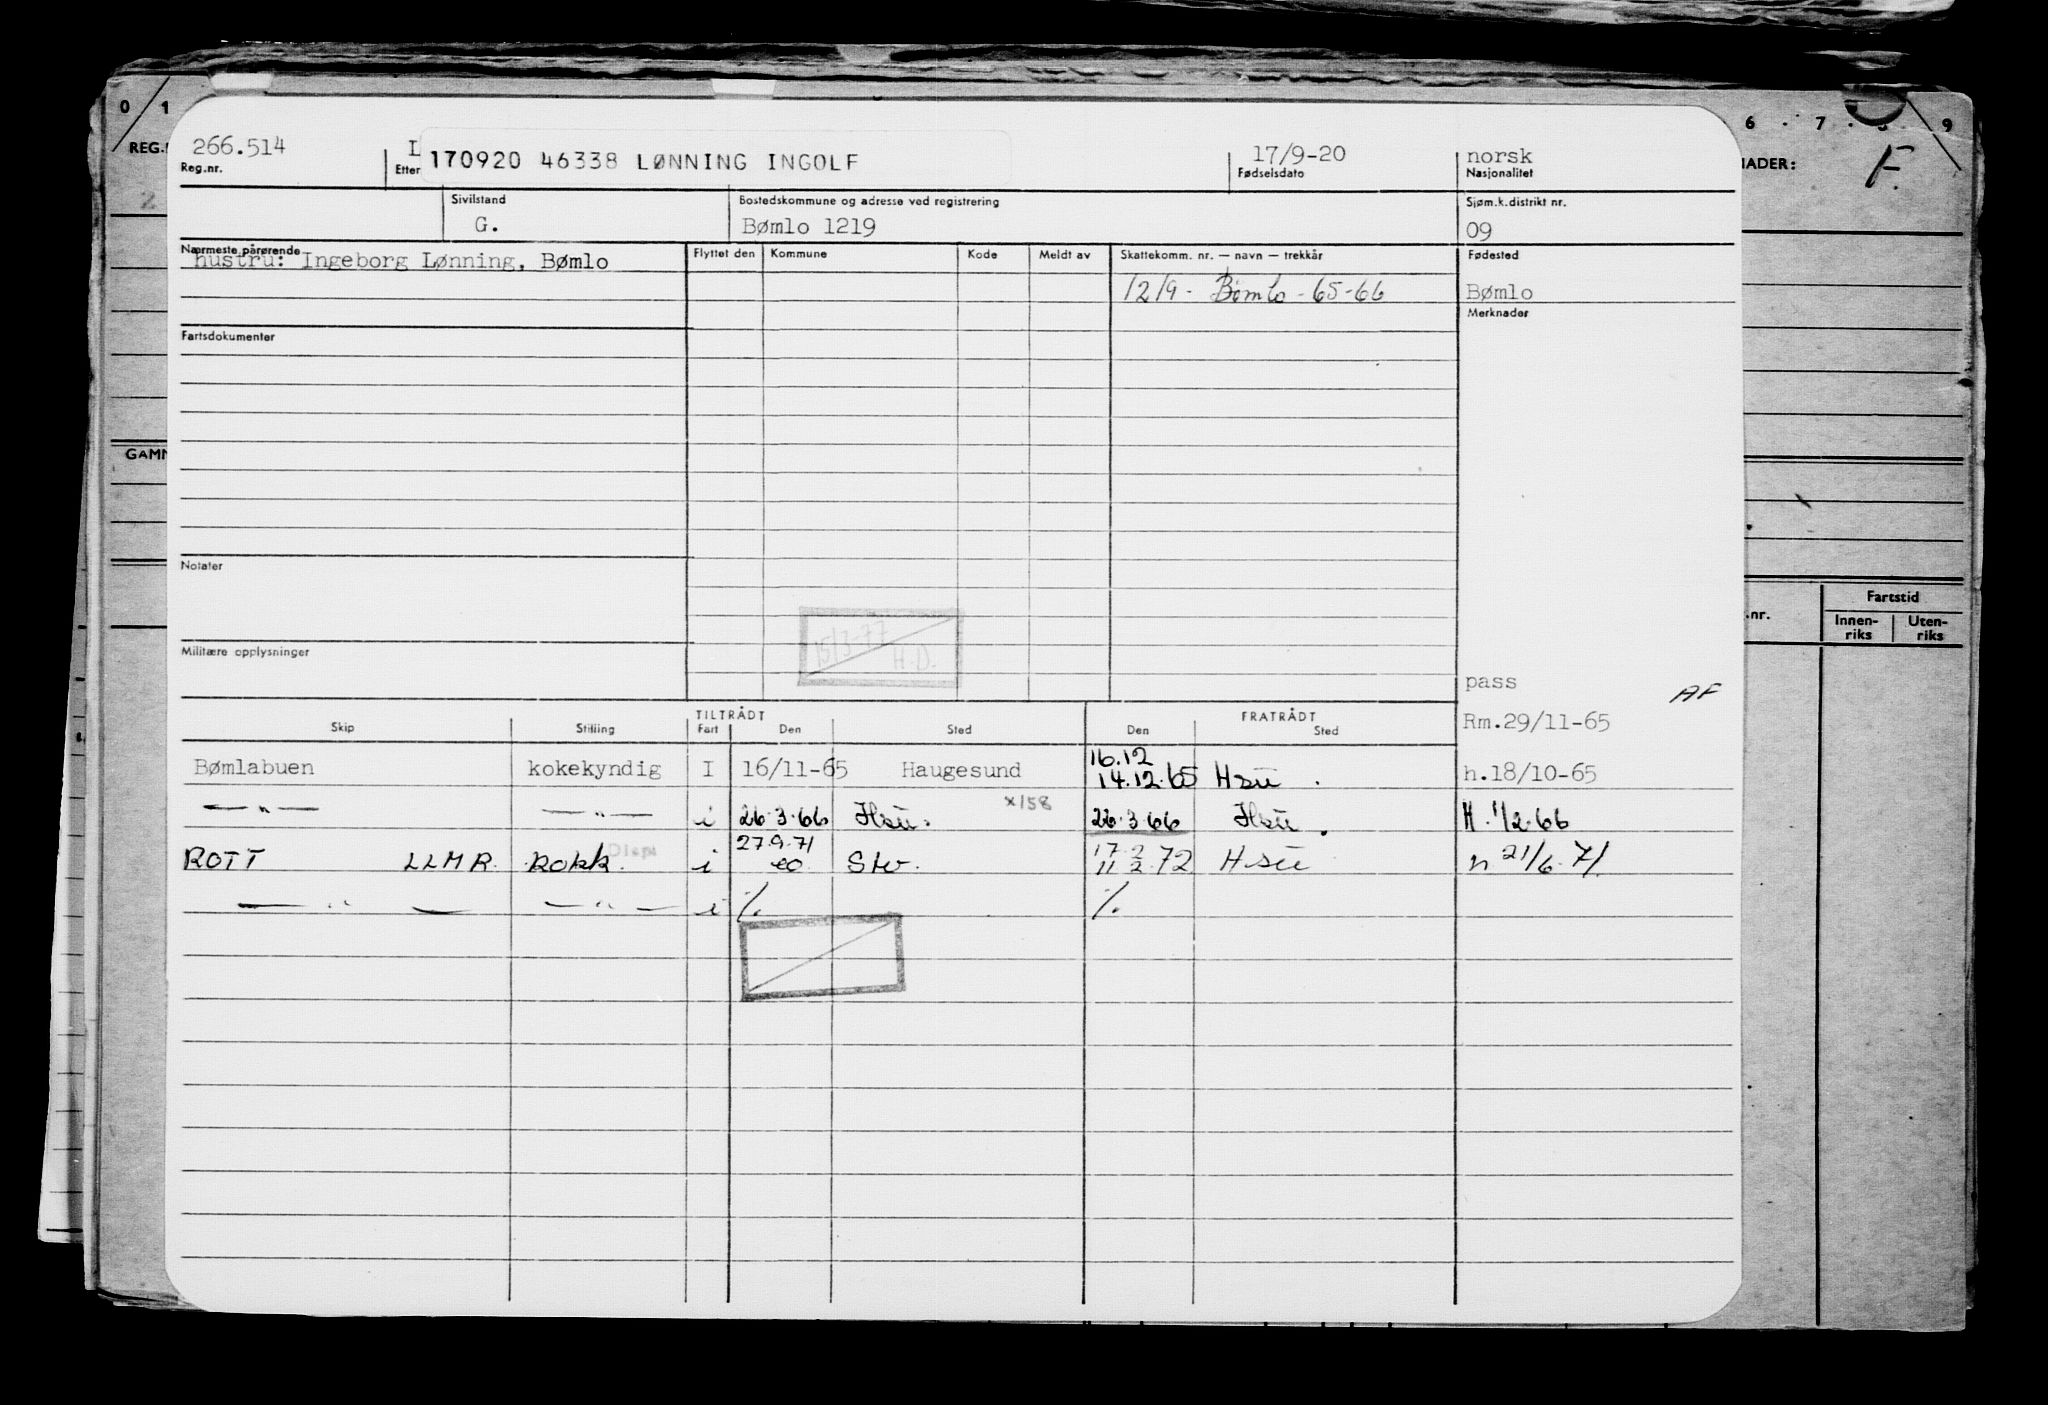 0 1 6 · 7 · 8 9
REG. NADER: F.
266.514 L 170920 46338 LØNNING INGOLF 17/9-20 norsk
Reg.nr. Etter Fødselsdato Nasjonalitet
Sivilstand Bostedskommune og adresse ved registrering Sjøm.k.distrikt nr.
G. Bømlo 1219 09
Nærmeste pårørende Flyttet den Kommune Kode Meldt av Skattekomm. nr. — navn — trekkår Fødested
hustru: Ingeborg Lønning, Bømlo
1219 - Bømlo - 65-66 Bømlo
Merknader
Fartsdokumenter
GAMN
Notater
Fartstid
.nr. Innen-riks Uten-riks
15/3-77 H.D.
Militære opplysninger
pass AF
TILTRÅDT FRATRÅDT Rm.29/11-65
Skip Stilling Fart Den Sted Den Sted
16.12
Bømlabuen kokekyndig I 16/11-65 Haugesund 14.12.65 Hsu . h.18/10-65
— " — — " — i 26.3.66 Hsu. x/58 26.3.66 Hsu . H. 1/2.66
27.9.71 17.2
ROTT LLMR. Kokk. i Stv. 11 2.72 Hsu n 21/6.71
— " — — " — i %. %.